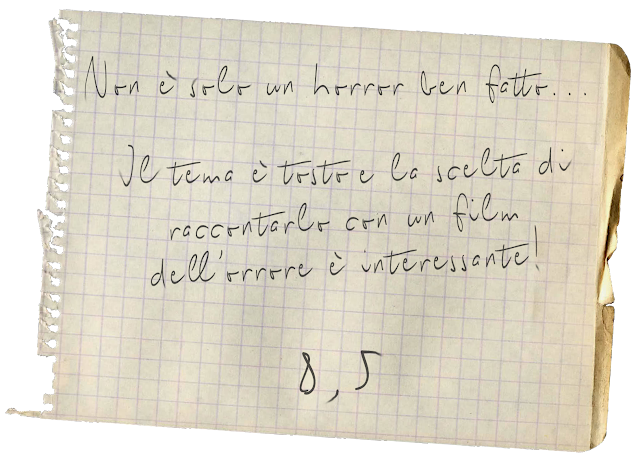 Non è solo un horror ben fatto...
Il tema è tosto e la scelta di
raccontarlo con un film
dell'orrore è interessante!
8,5